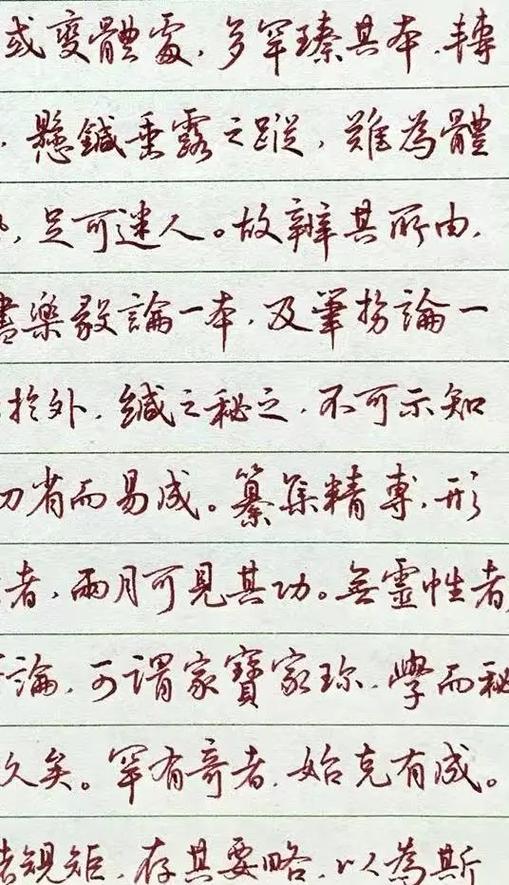 或變體處，多罕臻其本，轉
，懸鍼垂露之蹤，難為體
，足可迷人。故辯其所由，
書樂毅論一本，及筆勢論一
於外，緘之秘之，不可示知
功省而易成。纂集精專，形
者，兩月可見其功。無靈性者
論，可謂家寶家珍，學而秘
久矣。罕有奇者，始克有成。
諸規矩，存其要略，以為斯